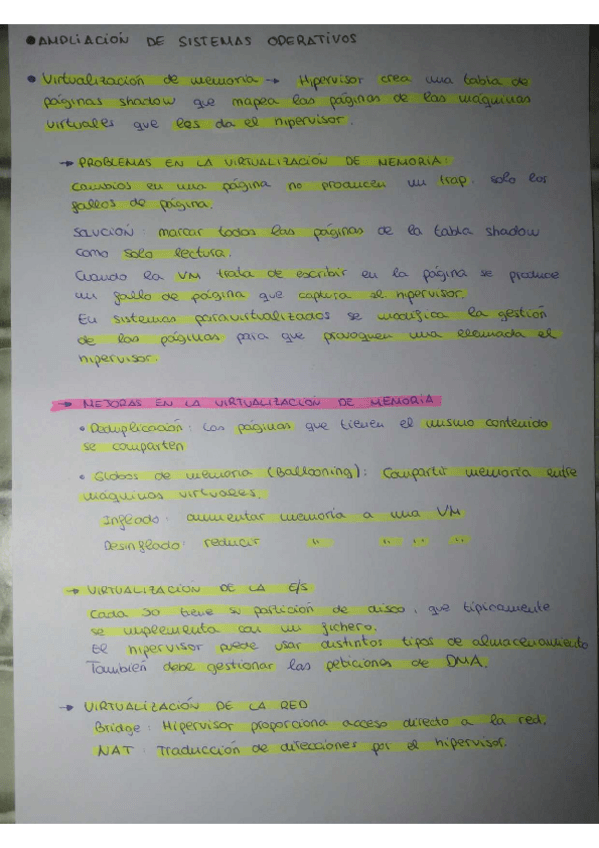 • AMPLIACIÓN DE SISTEMAS OPERATIVOS
• Virtualización de memoria → Hipervisor crea una tabla de
páginas shadow que mapea las páginas de las máquinas
virtuales que les da el hipervisor.
→ PROBLEMAS EN LA VIRTUALIZACIÓN DE MEMORIA:
Cambios en una página no producen un trap, solo los
fallos de página.
SOLUCIÓN: marcar todas las páginas de la tabla shadow
como solo lectura.
Cuando la VM trata de escribir en la página se produce
un fallo de página que captura el hipervisor.
En sistemas paravirtualizados se modifica la gestión
de las páginas para que provoquen una llamada el
hipervisor.
→ MEJORAS EN LA VIRTUALIZACIÓN DE MEMORIA
• Deduplicación: Las páginas que tienen el mismo contenido
se comparten
• Globos de memoria (Ballooning): Compartir memoria entre
máquinas virtuales.
Inflado: aumentar memoria a una VM
Desinflado: reducir " " " "
→ VIRTUALIZACIÓN DE LA E/S
Cada SO tiene su partición de disco, que típicamente
se implementa con un fichero.
El hipervisor puede usar distintos tipos de almacenamiento
También debe gestionar las peticiones de DMA.
→ VIRTUALIZACIÓN DE LA RED
Bridge: Hipervisor proporciona acceso directo a la red.
NAT: Traducción de direcciones por el hipervisor.